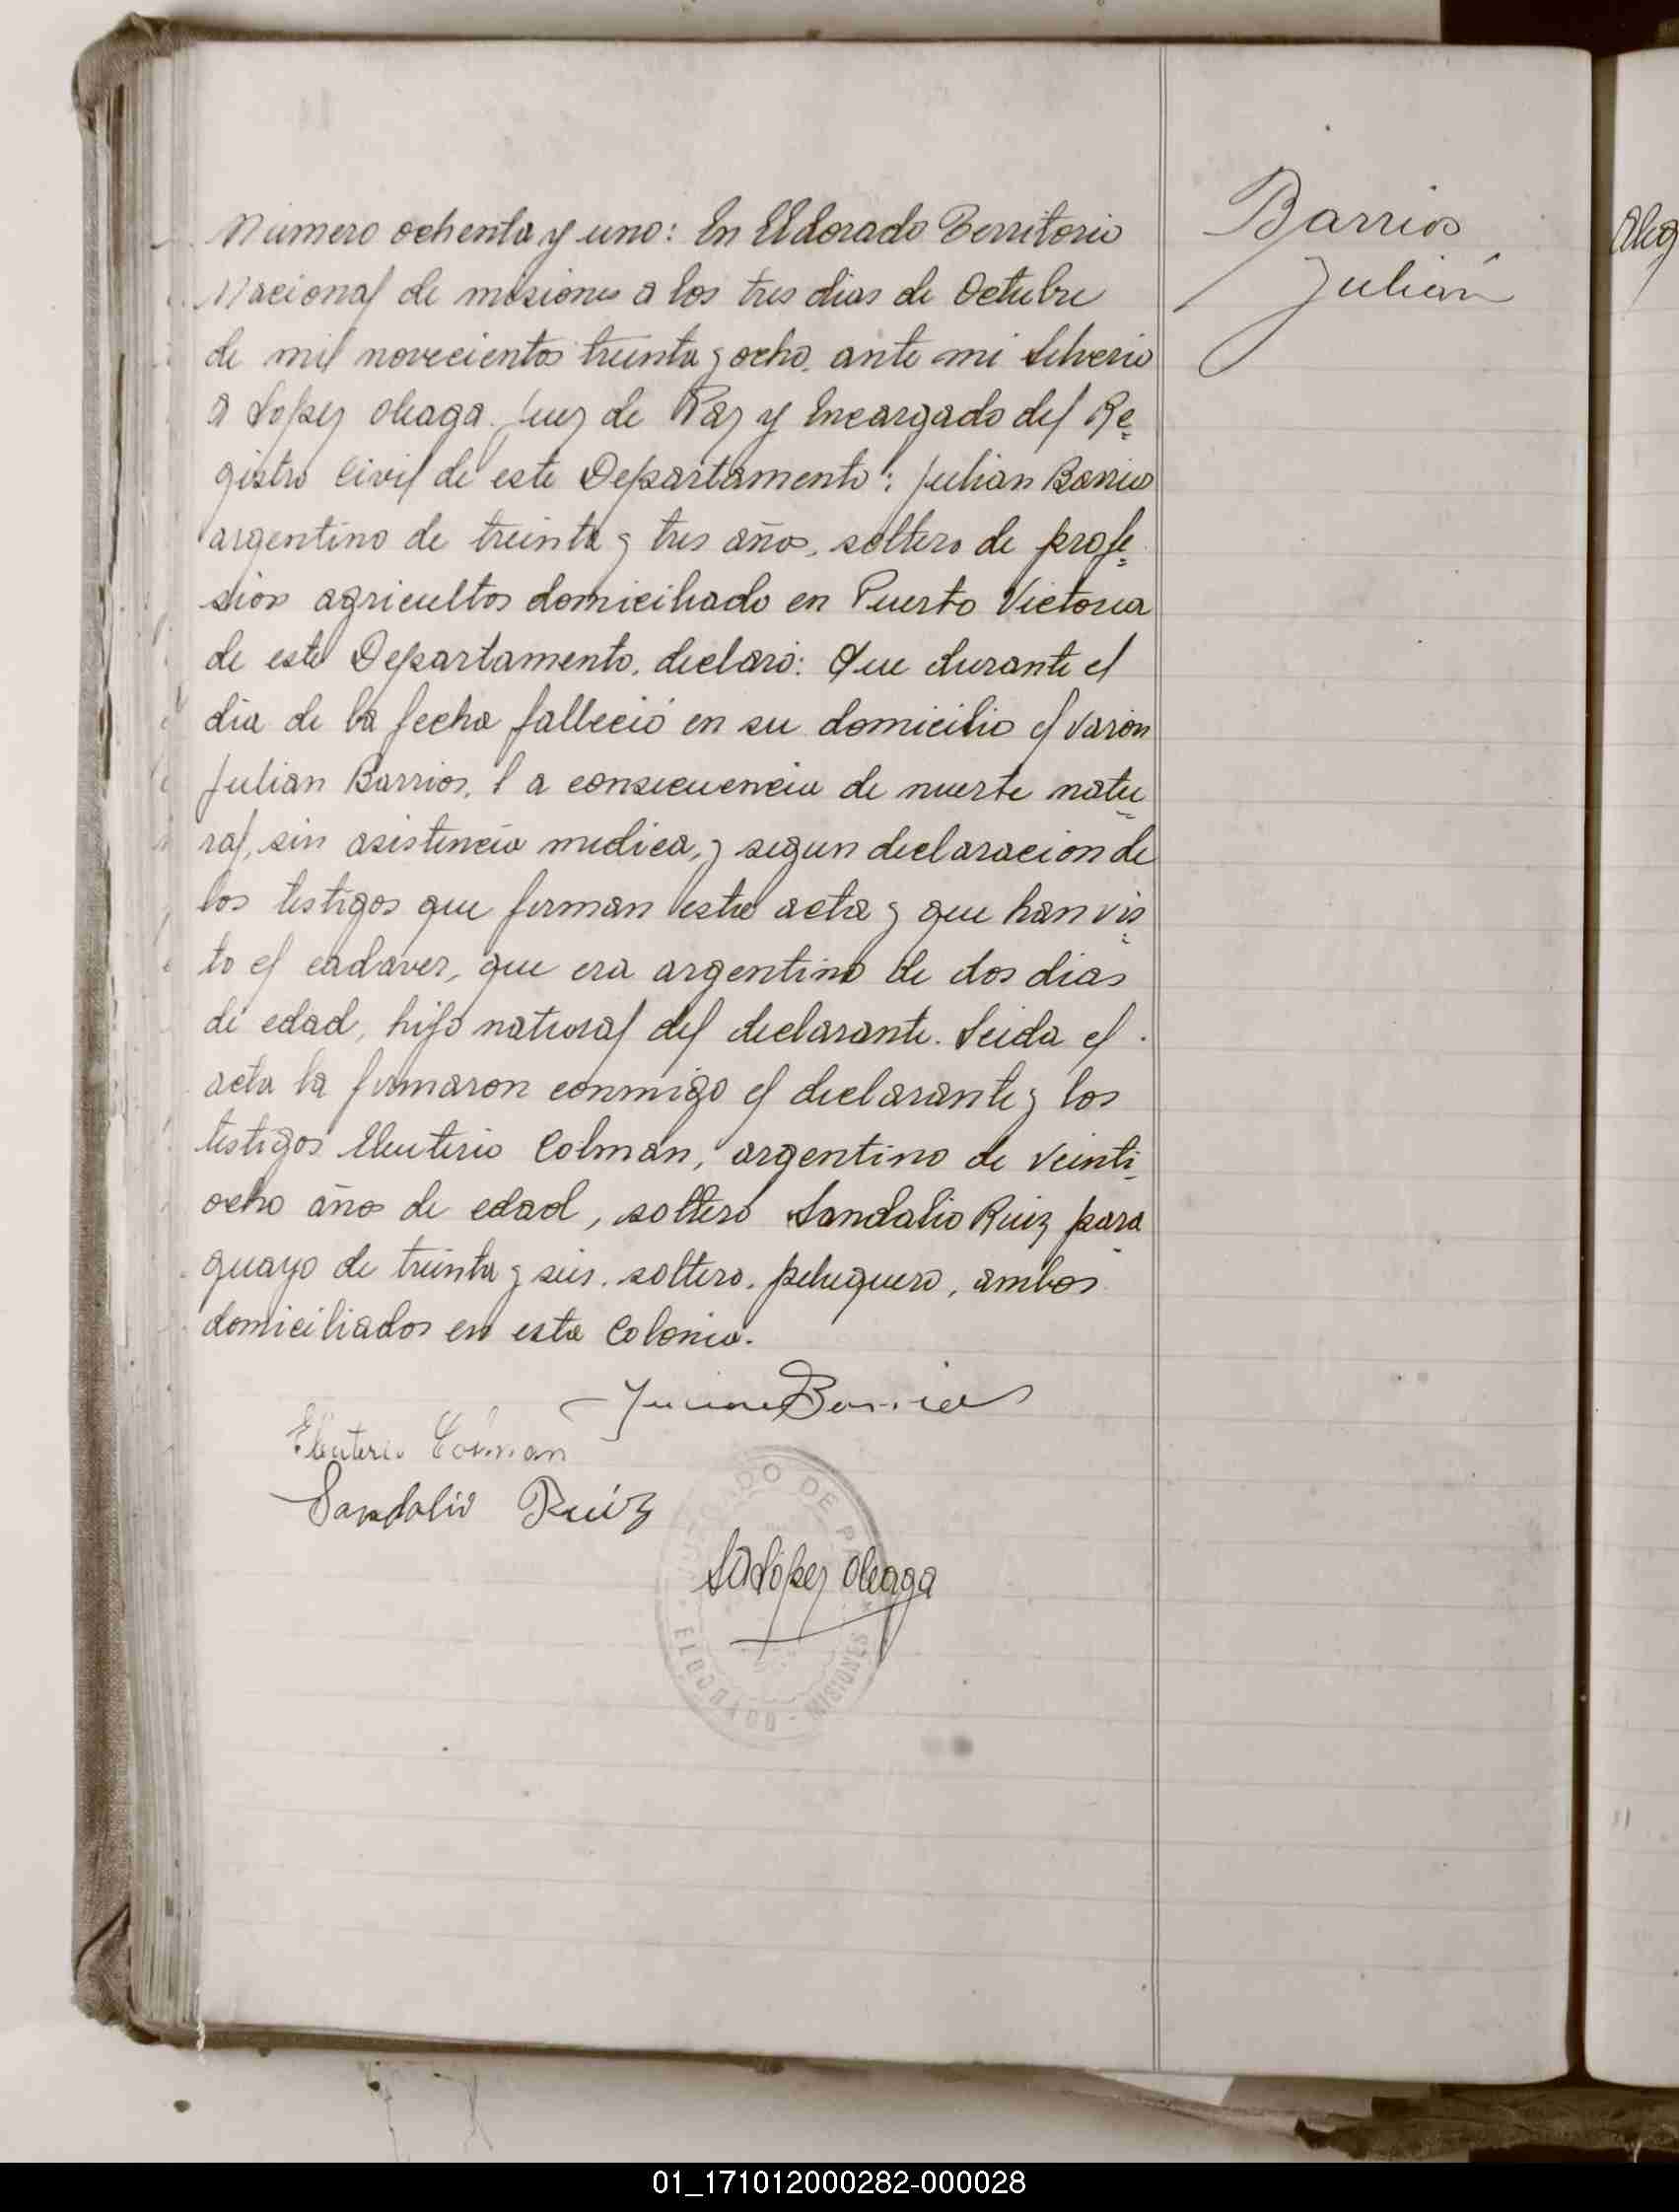 Numero ochenta y uno: En Eldorado Territorio
Nacional de misiones a los tres dias de Octubre
de mil novecientos treinta y ocho, ante mi Silverio
A Lopez Oleaga. Juez de Paz y Encargado del Re=
gistro Civil de este Departamento: Julian Barrios
argentino de treinta y tres años, soltero de profe=
sion agricultor domiciliado en Puerto Victoria
de este Departamento, declaró: Que durante el
dia de la fecha falleció en su domicilio el varón
Julian Barrios, a consecuencia de muerte natu=
ral, sin asistencia medica, y segun declaracion de
los testigos que firman esta acta y que han vis=
to el cadaver, que era argentino de dos dias
de edad, hijo natural del declarante. Leida el
acta la firmaron conmigo el declarante y los
testigos Eleuterio Colman, argentino de veinti=
ocho años de edad, soltero Sandalio Ruiz para
guayo de treinta y seis, soltero, peluquero, ambos
domiciliados en esta Colonia.
Barrios
Julián
Oleg
Julian Barrios
Eleuterio Colman
Sandalio Ruíz
JUZGADO DE PAZ
SALópez Oleaga
ELDORADO - MISIONES
01_171012000282-000028